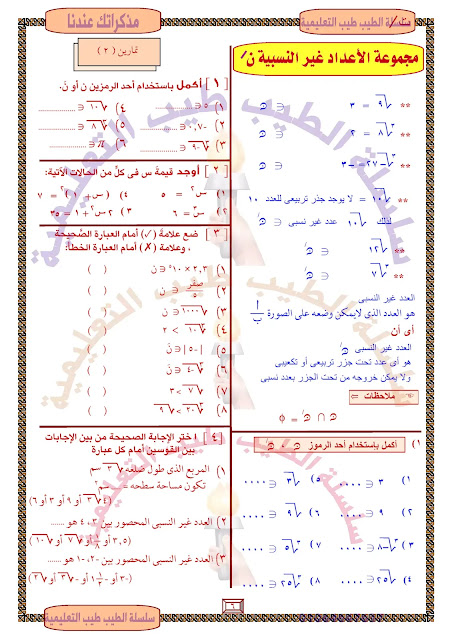 سلسلة الطيب طيب التعليمية
مذكراتك عندنا
مجموعة الأعداد غير النسبية نَ
** √٩ = ٣ ∋ ن
** ∛٨ = ٢ ∋ ن
** ∛-٢٧ = -٣ ∋ ن
** √١٠ = لا يوجد جذر تربيعى للعدد ١٠
لذلك √١٠ عدد غير نسبى ∋ نَ
العدد غير النسبى
هو العدد الذى لايمكن وضعه على الصورة أ/ب
أى أن
العدد غير النسبى نَ
هو أى عدد تحت جزر تربيعى أو تكعيبى
ولا يمكن خروجه من تحت الجزر بعدد نسبى
ملاحظات
ن ∩ نَ = ϕ
١) أكمل بإستخدام أحد الرموز ن ، نَ
١) ٣ ∋ ....
٢) ٩ ∋ ....
٣) ∛-٨ ∋ ....
٤) √٢٥ ∋ ....
٥) √٣ ∋ ....
٦) √٩ ∋ ....
٧) √٥ ∋ ....
٨) ∛٢٥ ∋ ....
تمارين (٢)
[١] أكمل باستخدام أحد الرمزين ن أو نَ.
١) ٥ ∋
٢) -٠,٧ ∋
[٢] أوجد قيمة س فى كل من الحالات الآتية:
١) س٢ = ٥
٢) س٣ = ٦
٣) ٢س٢ + ١ = ٣٥
٤) (س + ١)٢ = ٧
[٣] ضع علامة (✓) أمام العبارة الصحيحة
، وعلامة (✗) أمام العبارة الخطأ:
١) ٢,٣ × ١٠٤ ∋ ن ( )
٢) صفر/٥ ∋ ن ( )
٣) ∛١٠٠٠ ∋ ن ( )
٥) |-٥| ∋ نَ ( )
[٤] اختر الإجابة الصحيحة من بين الإجابات
بين القوسين أمام كل عبارة
١) المربع الذى طول ضلعه √٣ سم
تكون مساحة سطحه = ... سم٢
(٤√٣ أو ٩ أو ٣ أو ٦)
٢) العدد غير النسبى المحصور بين ٣، ٤ هو ......
(٣,٥ أو ١/٨ أو √٧ أو √١٠)
٣) العدد غير النسبى المحصور بين -٢، -١ هو .....
٦
سلسلة الطيب طيب التعليمية